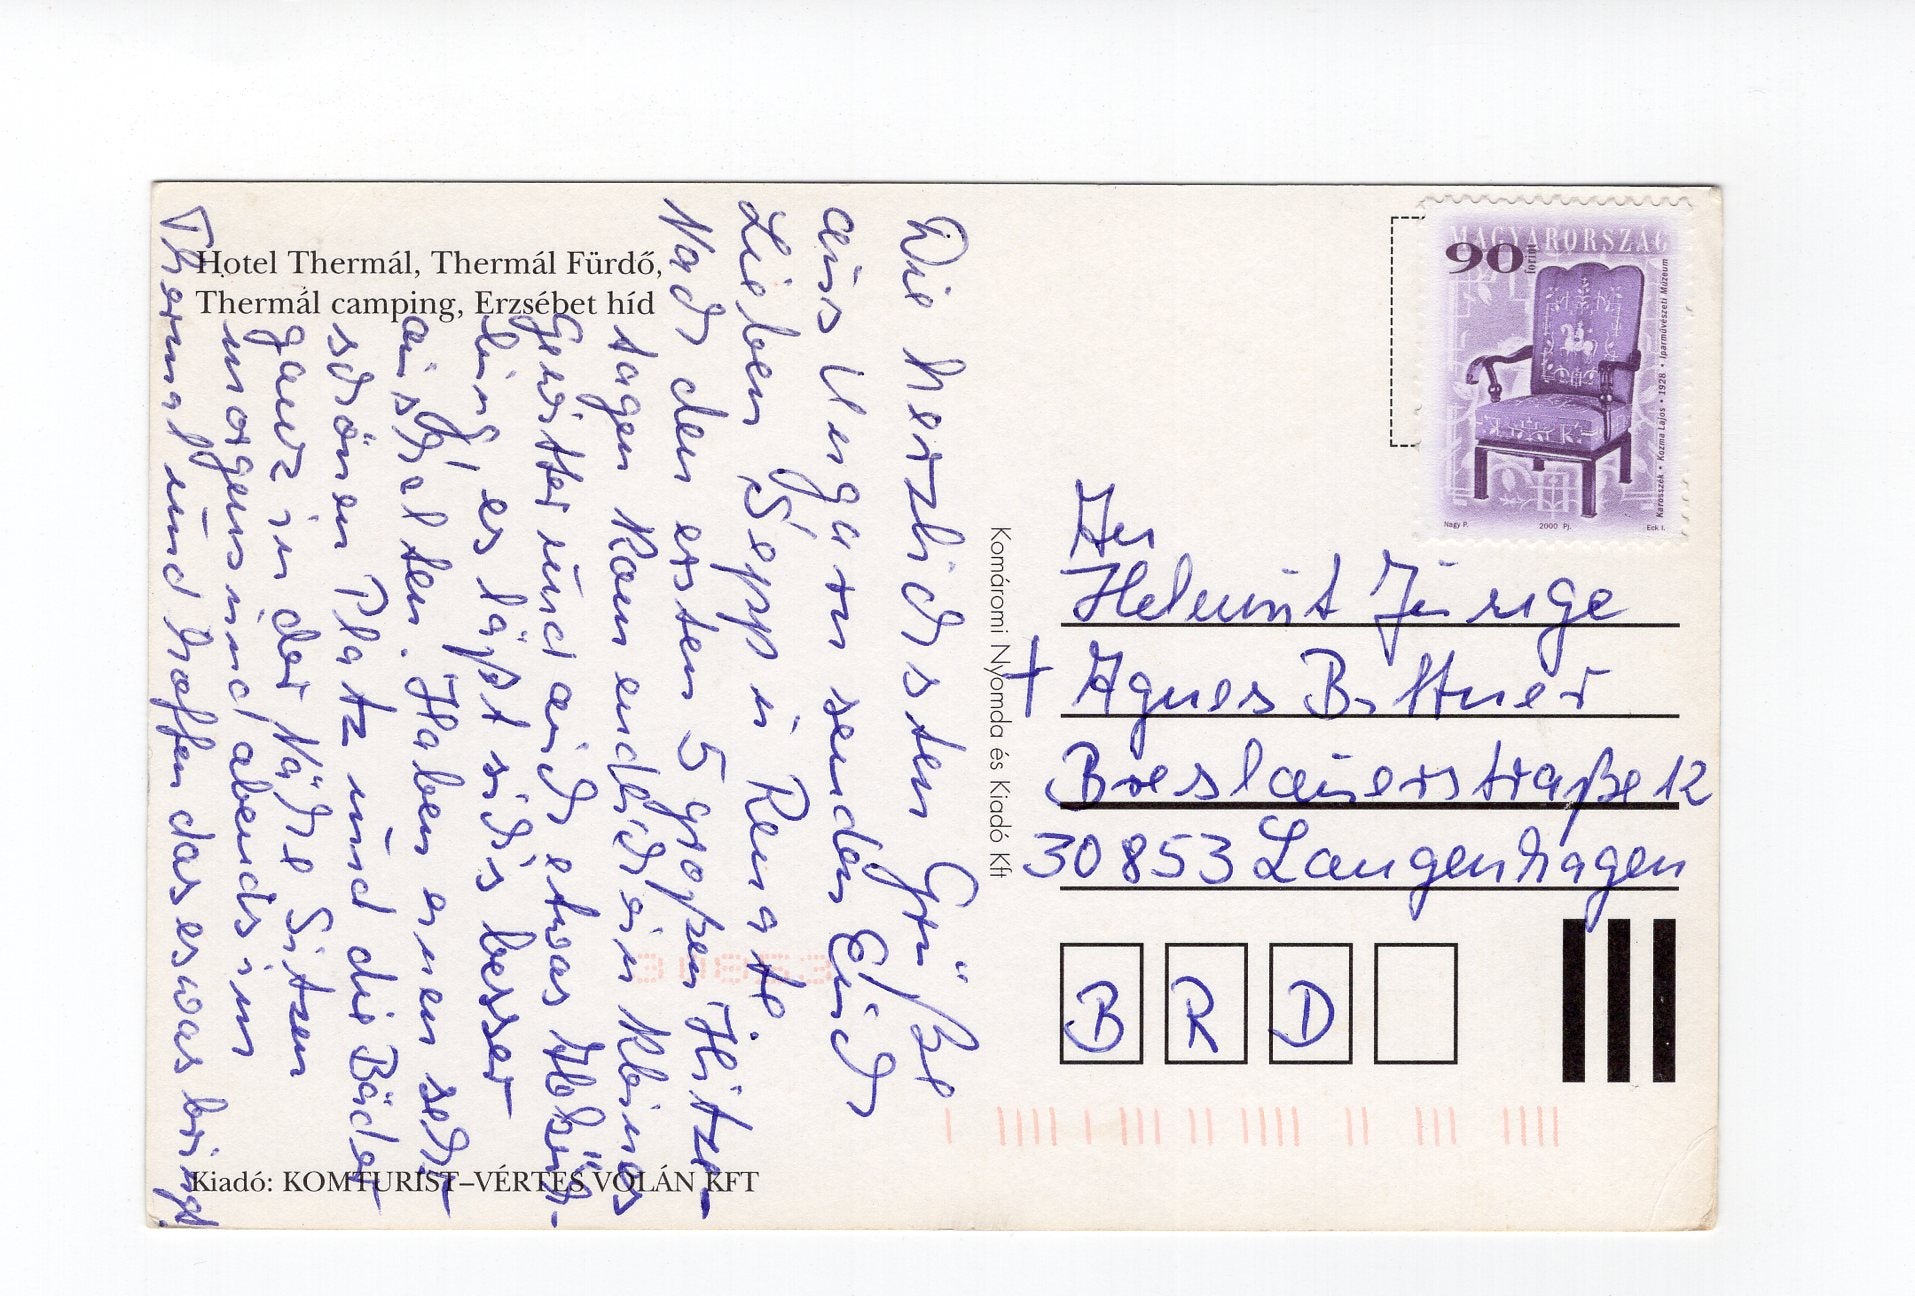 Hotel Thermál, Thermál Fürdő,
Thermál camping, Erzsébet híd
Die herzlichsten Grüße
aus Ungarn senden Euch
Lieben Sepp u Renate.
Nach den ersten 5 großen Hitze-
tagen kam endlich ein kleines
Gewitter und auch etwas Abküh-
lung, es läßt sich's besser
aushalten. Haben einen sehr
schönen Platz und die Bäder
ganz in der Nähe. Sitzen
morgens und abends im
Thermal und hoffen das es was bringt.
Kiadó: KOMTURIST–VÉRTES VOLÁN KFT
Komáromi Nyomda és Kiadó Kft
MAGYARORSZÁG
90 forint
Karosszék • Kozma Lajos • 1928. • Iparművészeti Múzeum
Nagy P. 2000 Pj. Eck I.
An
Helmut Junge
+ Agnes Bittner
Breslauerstraße 12
30853 Langenhagen
B R D
30853